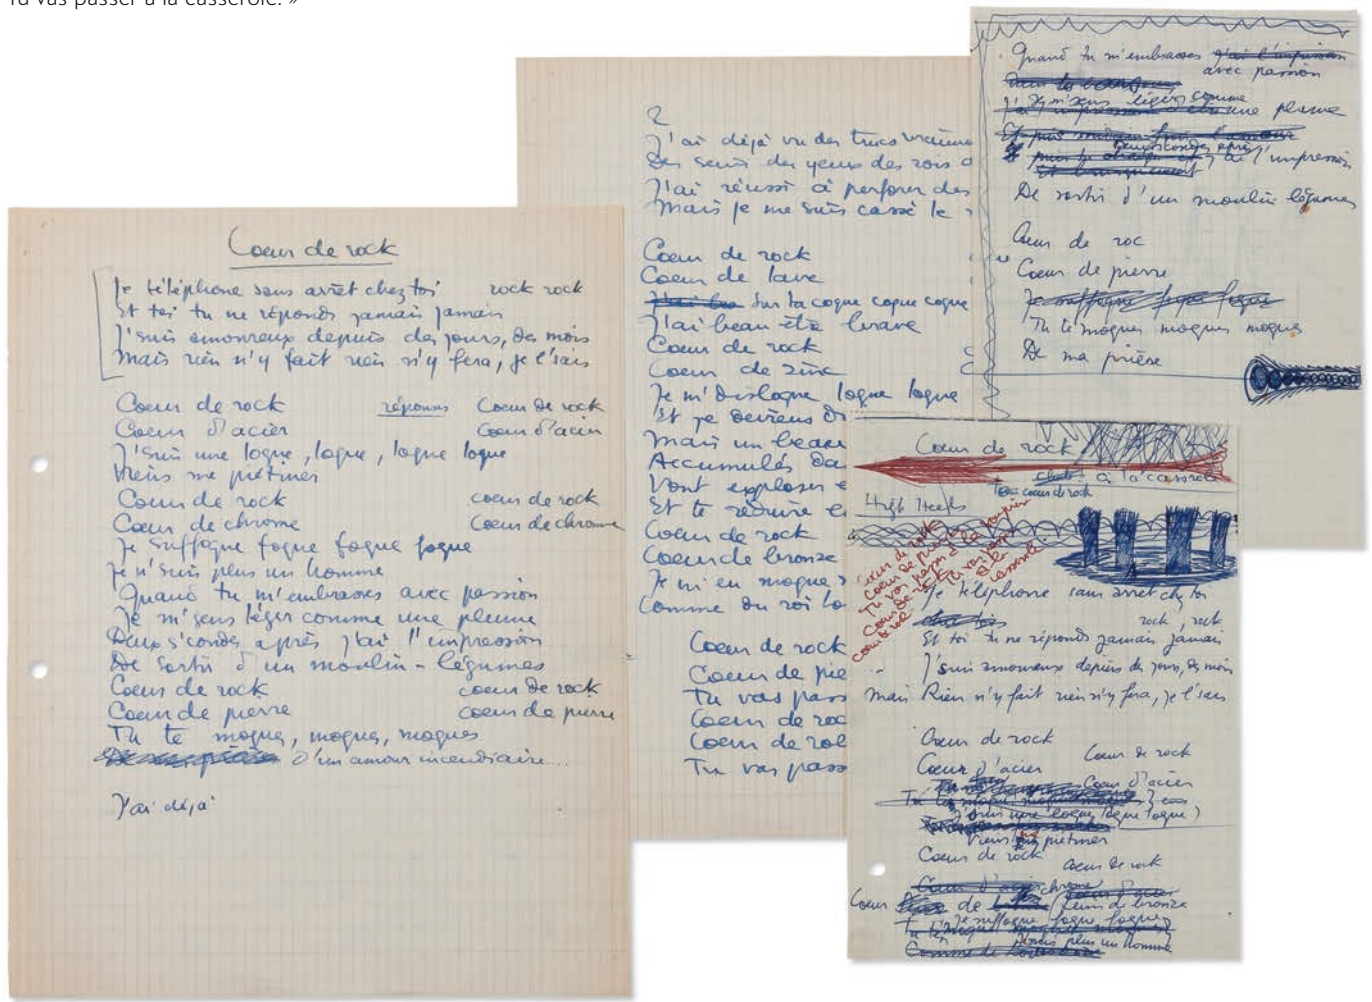 Tu vas passer à la casserole. »
Coeur de rock
Je téléphone sans arrêt chez toi rock rock
Et toi tu ne réponds jamais jamais
J'suis amoureux depuis des jours, des mois
Mais rien n'y fait rien n'y fera, je l'sais
Coeur de rock réponses Coeur de rock
Coeur d'acier Coeur d'acier
J'suis une loque, loque, loque loque
Viens me piétiner
Coeur de rock coeur de rock
Coeur de chrome Coeur de chrome
Je suffoque foque foque foque
Je n'suis plus un homme
Quand tu m'embrasses avec passion
Je m'sens léger comme une plume
Deux s'condes après j'ai l'impression
De sortir d'un moulin-légumes
Coeur de rock coeur de rock
Coeur de pierre coeur de pierre
Tu te moques, moques, moques
D'un amour incendiaire...
J'ai déjà
2
J'ai déjà vu des trucs vraiment
Des seins des yeux des rois d
J'ai réussi à perforer des
Mais je me suis cassé le
Coeur de rock
Coeur de lave
Sur ta coque coque coque
J'ai beau être brave
Coeur de rock
Coeur de zinc
Je m'disloque loque loque
Et je deviens d
Mais un beau
Accumulés da
Vont exploser e
Et te réduire e
Coeur de rock
Coeur de bronze
Je m'en moque
Comme du roi
Coeur de rock
Coeur de pie
Tu vas pass
Coeur de roc
Coeur de roc
Tu vas pass
Quand tu m'embrasses j'ai l'impression
avec passion
Je m'sens léger comme
une plume
deux secondes après
j'ai l'impression
De sortir d'un moulin légumes
Coeur de roc
Coeur de pierre
Je suffoque foque foque
Tu te moques moques moques
De ma prière
Coeur de rock
à la casserole
coeur de rock
High Heels
Coeur de rock
Coeur de pierre
Tu vas passer à la
Coeur de rock
Tu vas passer
à la
casserole
Je téléphone sans arrêt chez toi
chez toi rock, rock
Et toi tu ne réponds jamais jamais
J'suis amoureux depuis des jours, des mois
Mais Rien n'y fait rien n'y fera, je l'sais
Coeur de rock
Coeur de rock
Coeur d'acier
Coeur d'acier
J'suis une loque loque loque
Viens me piétiner
Coeur de rock
Coeur de rock
Coeur d'acier chrome
Coeur de
Coeur de bronze
Je suffoque foque foque
J'suis plus un homme